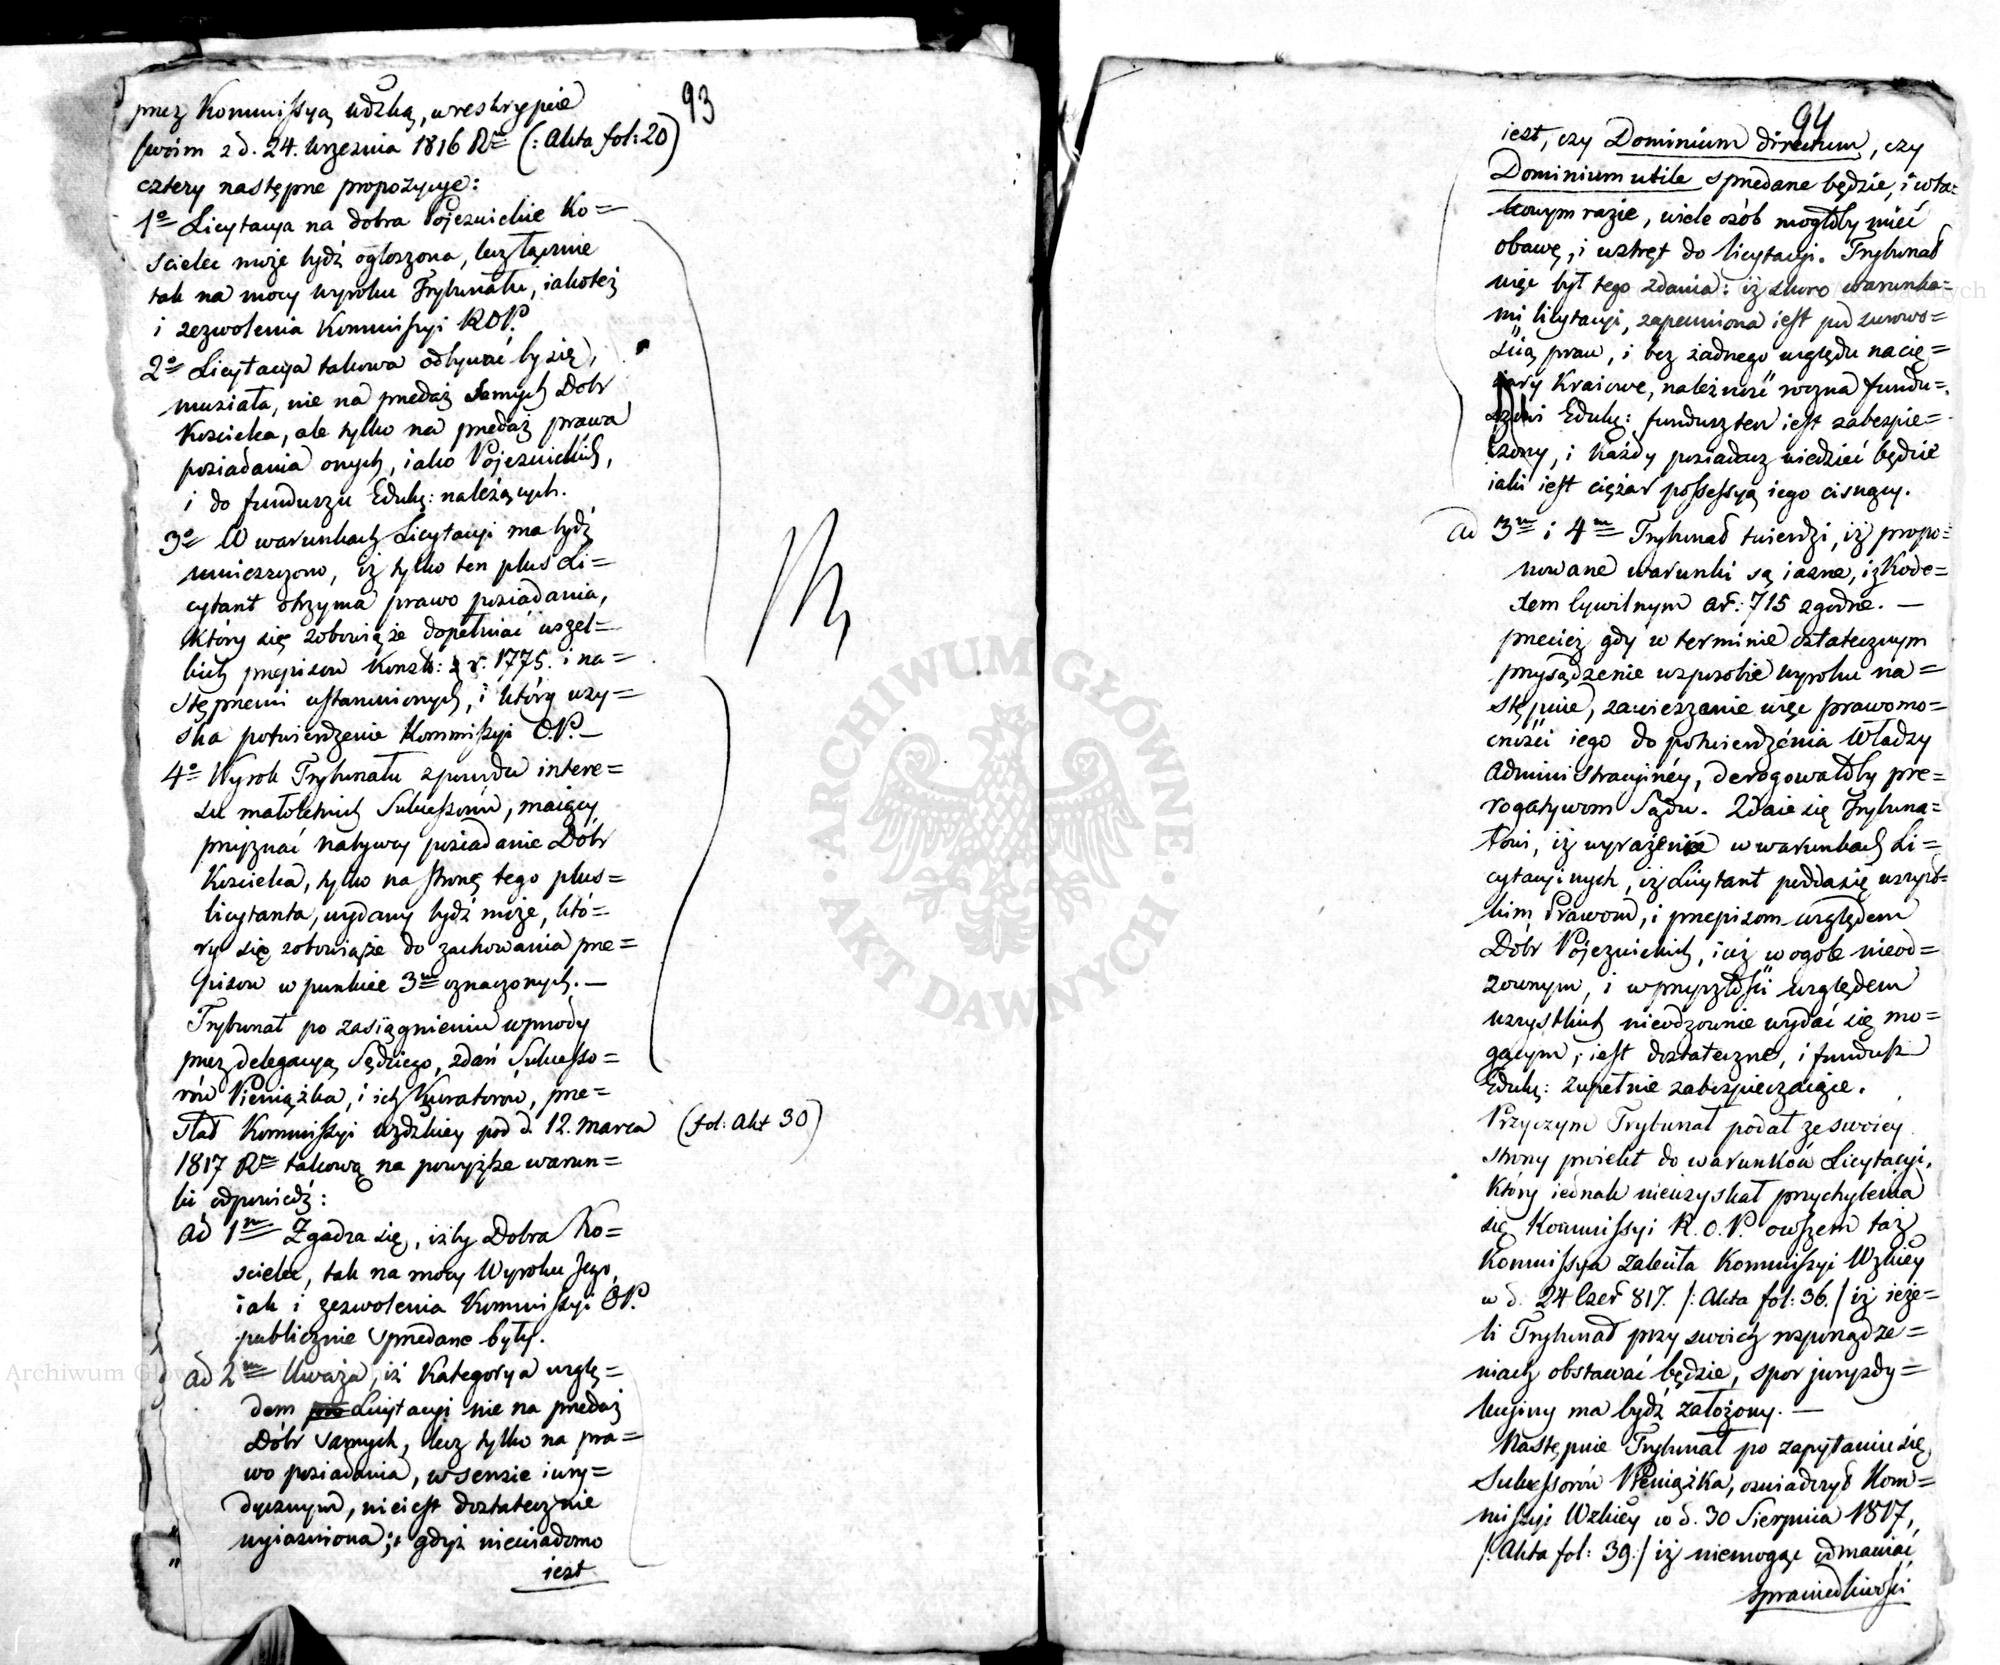 93
przez Kommissyą Wdzką, w reskrypcie
swóim z d. 24. Września 1816 Rᵘ (: Akta fol: 20)
cztery następne propozycye:
1º Licytacya na dobra Pojezuickie Ko=
scielec może bydź ogłoszona, lecz łącznie
tak na mocy wyroku Trybunału, iakoteż
i zezwolenia Kommissyi ROP.
2º Licytacya takowa odbywać by się
musiała, nie na przedaż samych Dóbr
Kościelca, ale tylko na przedaż prawa
posiadania onych, iako Pojezuickich,
i do funduszu Eduk: należących.
3º W warunkach Licytacyi ma bydź
umieszczono, iż tylko ten plus Li=
cytant otrzyma prawo posiadania,
który się zobowiąże dopełniać wszel=
kich przepisow Konst: z r. 1775. i na=
stępnemi ustanowionych, i który uzy=
ska potwierdzenie Kommissyi O.P. —
4º Wyrok Trybunału z powodu intere=
su małoletnich Sukcessorów, maiący
przyznać nabywcy posiadanie Dóbr
Kościelca, tylko na stronę tego plus=
licytanta, wydany bydź może, któ=
ry się zobowiąże do zachowania prze=
pisow w punkcie 3ᵐ oznaczonych. —
Trybunał po zasiągnieniu wprzody
przez delegacyą Sędziego, zdań Sukcesso=
rów Pieniążka, i ich Kuratorów, prze=
słał Kommissyi Wdzkiey pod d. 12. Marca (fol: Akt 30)
1817 Rᵘ takową na powyższe warun=
ki odpowiedź:
ad 1ᵐ Zgadza się, iżby Dobra Ko=
scielec, tak na mocy Wyroku Jego,
iak i zezwolenia Kommissyi OP.
publicznie sprzedane były.
ad 2ᵐ Uważa, iż Kategorya wzglę=
dem Licytacyi nie na przedaż
Dóbr samych, lecz tylko na pra=
wo posiadania, w sensie iury=
dycznym, nieiest dostatecznie
wyiasniona; gdyż niewiadomo
iest
94
iest, czy Dominium directum, czy
Dominium utile sprzedane będzie, i w ta=
kowym razie, wiele osób mogłoby mieć
obawę, i wstręt do licytacyi. Trybunał
więc był tego zdania: iż skoro warunka=
mi licytacyi, zapewniona iest pod surowo=
ścią praw, i bez żadnego względu na cię=
żary Kraiowe, należność roczna fundu=
szowi Eduk: fundusz ten iest zabezpie=
czony, i każdy posiadacz wiedzieć będzie
iaki iest ciężar possessyą iego cisnący.
ad 3ᵐ i 4ᵐ Trybunał twierdzi, iż propo=
nowane warunki są iasne, iż Kode=
xem Cywilnym art: 715 zgodne. —
przecież gdy w terminie ostatecznym
przysądzenie w sposobie wyroku na=
stępuie, zawieszanie więc prawomo=
cności iego do potwierdzenia Władzy
Administracyinéy, derogowałoby pre=
rogatywom Sądu. Zdaie się Trybuna=
łowi, iż wyrażenie w warunkach Li=
cytacyinych, iż Licytant podda się wszyst=
kim Prawom, i przepisom względem
Dóbr Pojezuickich, iuż w ogole nieod=
zownym, i w przyszłości względem
wszystkich nieodzownie wydać się mo=
gącym, iest dostateczne, i fundusz
Eduk: zupełnie zabezpieczaiące.
Przyczym Trybunał podał ze swoiey
strony proiekt do warunków Licytacyi,
który iednak nieuzyskał przychylenia
się Kommissyi R.O.P. owszem taż
Kommissya zaleciła Kommissyi Wzkiey
w d. 24 Czer 817. /: Akta fol: 36./ iż ieże=
li Trybunał przy swoich rozporządze=
niach obstawać będzie, spor juryzdy=
kcyiny ma bydź założony. —
Następnie Trybunał po zapytaniu się
Sukcessorów Pieniążka, oswiadczył Kom=
missyi Wzkiey w d. 30 Sierpnia 1817,
/: Akta fol: 39:/ iż niemogąc odmawiać
sprawiedliwości
ARCHIWUM GŁÓWNE · AKT DAWNYCH ·